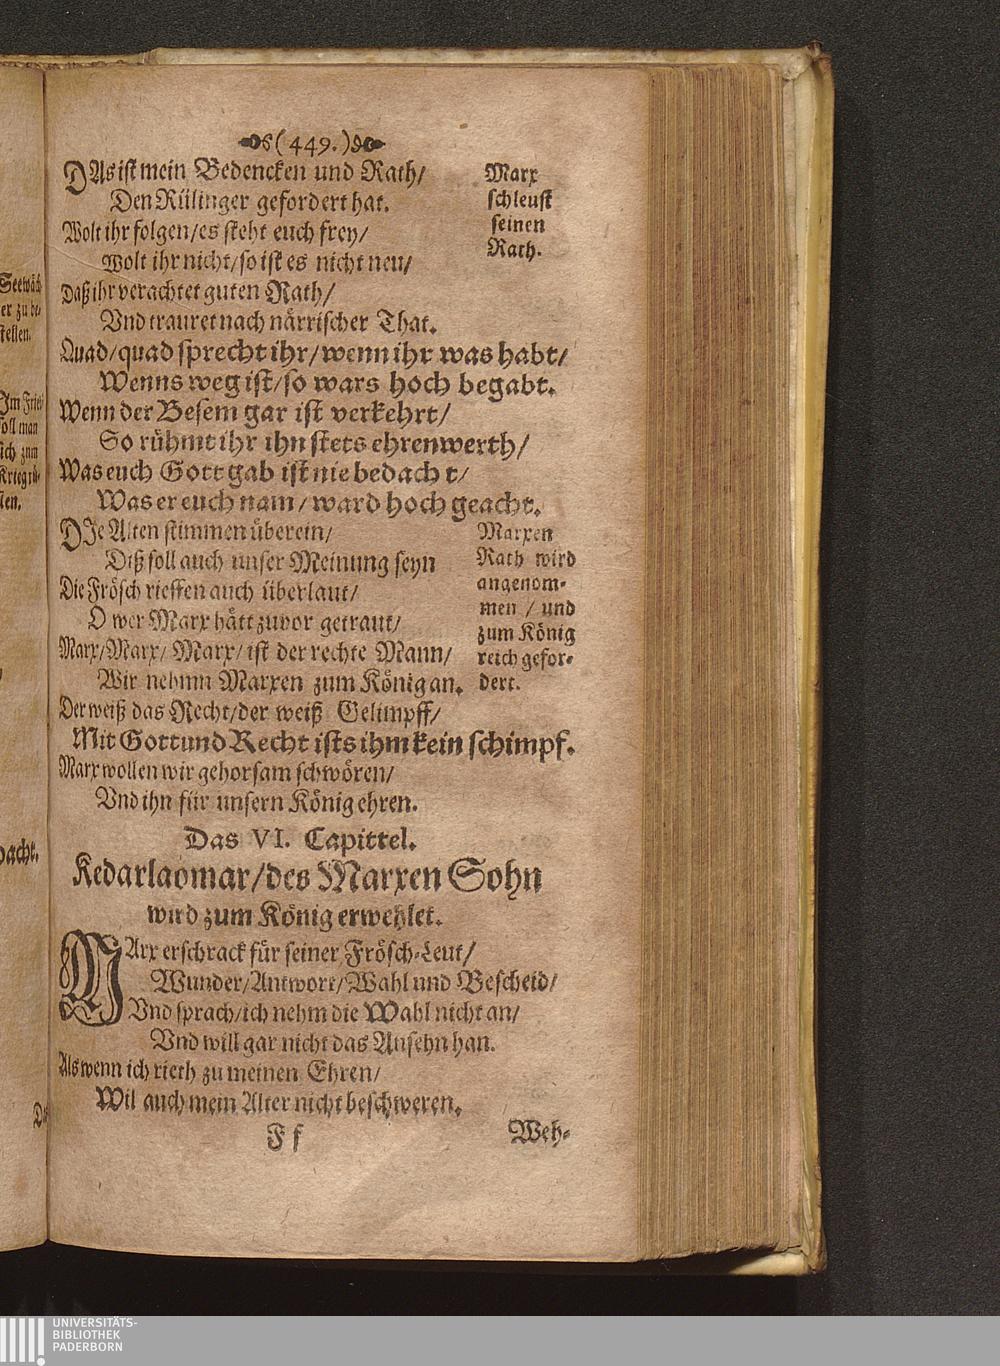 Seewäch
er zu be-
stellen.
Im Frie-
soll man
sich zum
Krieg rü-
sten.
(449.)
DAs ist mein Bedencken und Rath/
Den Rülinger gefordert hat.
Wolt ihr folgen/es steht euch frey/
Wolt ihr nicht/so ist es nicht neu/
Daß ihr verachtet guten Rath/
Vnd trauret nach närrischer That.
Quad/quad sprecht ihr/wenn ihr was habt/
Wenns weg ist/so wars hoch begabt.
Wenn der Besem gar ist verkehrt/
So rühmt ihr ihn stets ehrenwerth/
Was euch Gott gab ist nie bedacht/
Was er euch nam/ward hoch geacht.
Marx
schleust
seinen
Rath.
DIe Alten stimmen überein/
Diß soll auch unser Meinung seyn
Die Frösch rieffen auch überlaut/
O wer Marx hätt zuvor getraut/
Marx/Marx/Marx/ist der rechte Mann/
Wir nehmn Marxen zum König an.
Der weiß das Recht/der weiß Gelimpff/
Mit Gott und Recht ists ihm kein schimpf.
Marx wollen wir gehorsam schwören/
Vnd ihn für unsern König ehren.
Marxen
Rath wird
angenom-
men / und
zum König
reich gefor-
dert.
Das VI. Capittel.
Kedarlaomar/des Marxen Sohn
wird zum König erwehlet.
MArx erschrack für seiner Frösch-Leut/
Wunder/Antwort/Wahl und Bescheid/
Vnd sprach/ich nehm die Wahl nicht an/
Vnd will gar nicht das Ansehn han.
Als wenn ich rieth zu meinen Ehren/
Wil auch mein Alter nicht beschweren.
F f
Weh-
UNIVERSITÄTS-
BIBLIOTHEK
PADERBORN